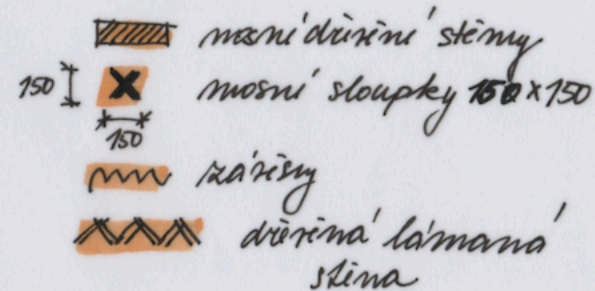 nosní dřevěné stěny
150 nosní sloupky 150 x 150
150
závěsy
dřevěná lámaná
stěna